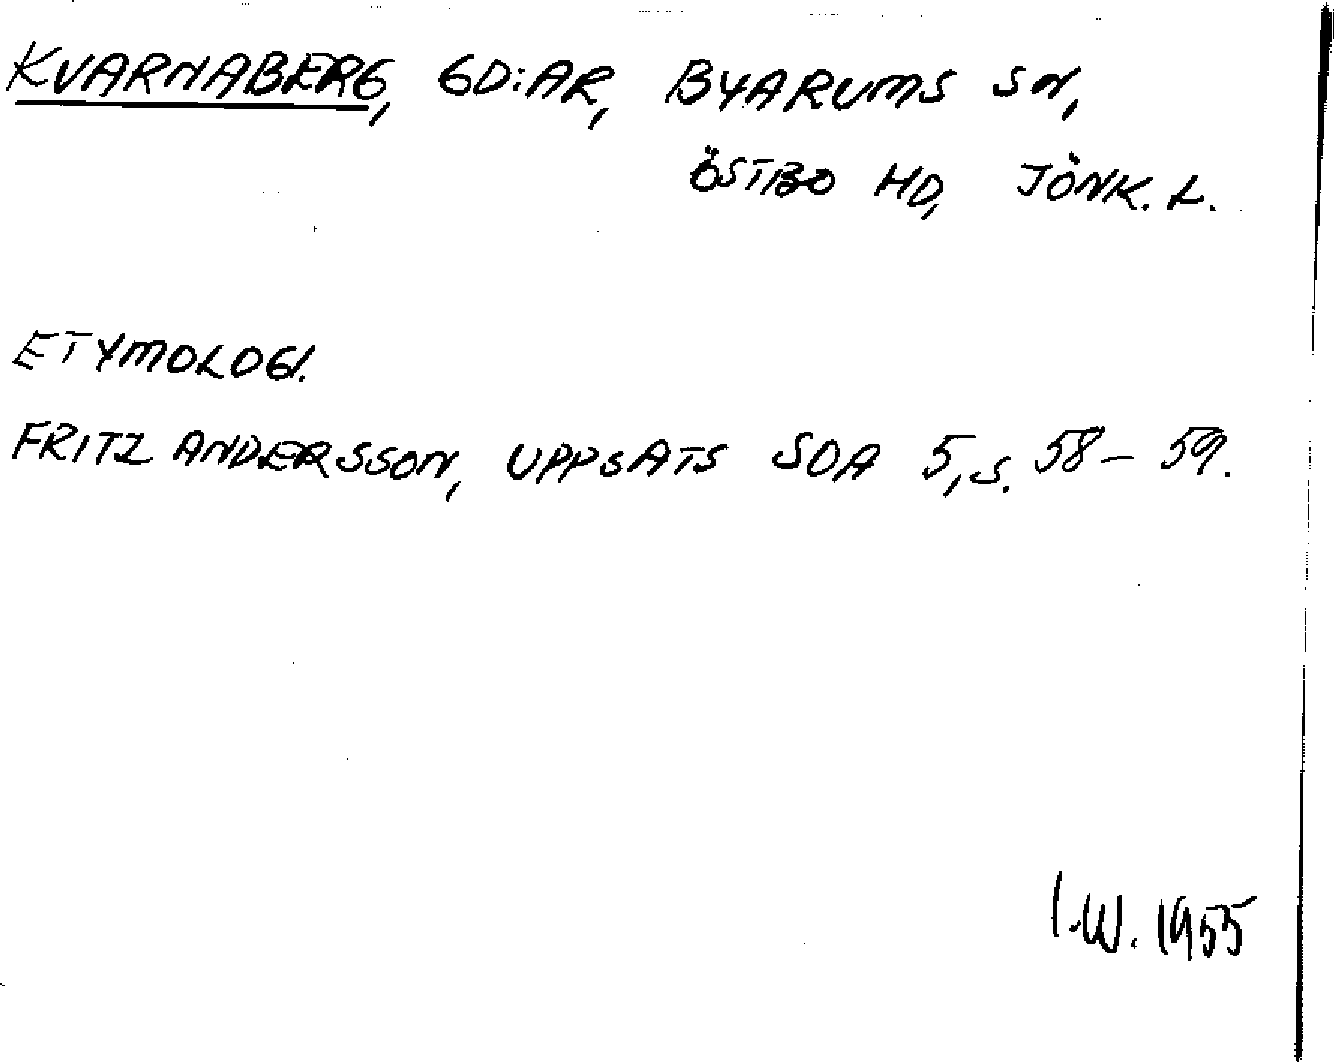 KVARNABERG, GD:AR, BYARUMS SN,
ÖSTBO HD, JÖNK. L.
ETYMOLOGI.
FRITZ ANDERSSON, UPPSATS SOA 5, S. 58–59.
I.W. 1955